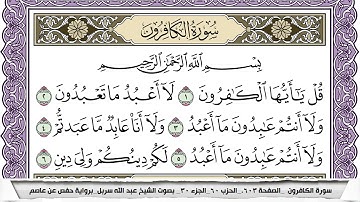 سورة الكافرون
بِسْمِ اللَّهِ الرَّحْمَٰنِ الرَّحِيمِ
قُلْ يَا أَيُّهَا الْكَافِرُونَ ١ لَا أَعْبُدُ مَا تَعْبُدُونَ ٢
وَلَا أَنتُمْ عَابِدُونَ مَا أَعْبُدُ ٣ وَلَا أَنَا عَابِدٌ مَّا عَبَدتُّمْ ٤
وَلَا أَنتُمْ عَابِدُونَ مَا أَعْبُدُ ٥ لَكُمْ دِينُكُمْ وَلِيَ دِينِ ٦
سورة الكافرون _ الصفحة ٦٠٣ _ الحزب ٦٠ _ الجزء ٣٠ _ بصوت الشيخ عبد الله سربل _ برواية حفص عن عاصم